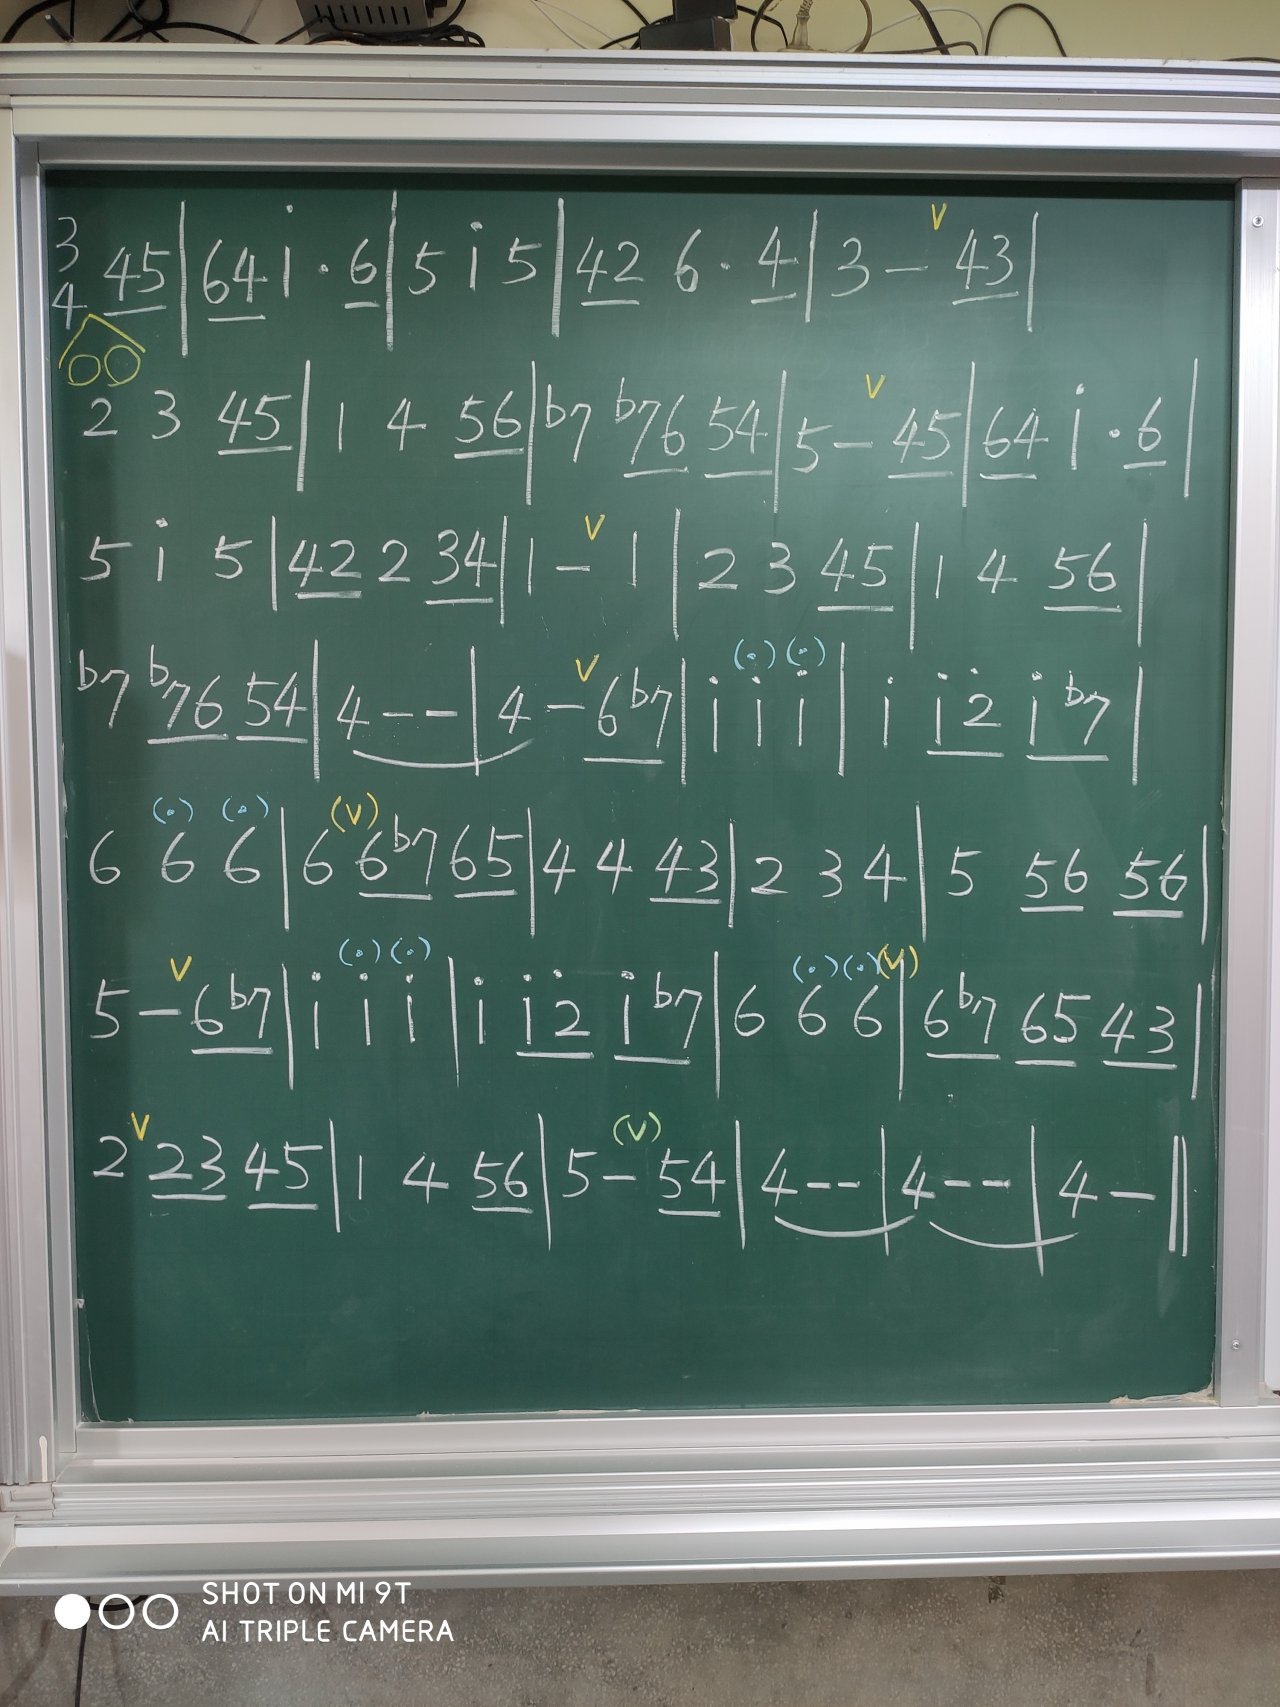 3/4 45 | 64 i · 6 | 5 i 5 | 42 6 · 4 | 3 – V 43 |
2 3 45 | 1 4 56 | b7 b76 54 | 5 – V 45 | 64 i · 6 |
5 i 5 | 42 2 34 | 1 – V 1 | 2 3 45 | 1 4 56 |
b7 b76 54 | 4 – – | 4 – V 6b7 | i i(·) i(·) | i i2̇ ib7 |
6 6(·) 6(·) | 6 (V) 6b7 65 | 4 4 43 | 2 3 4 | 5 56 56 |
5 – V 6b7 | i i(·) i(·) | i i2̇ ib7 | 6 6(·) 6(·) (V) | 6b7 65 43 |
2 V 23 45 | 1 4 56 | 5 – (V) 54 | 4 – – | 4 – – | 4 – ||
SHOT ON MI 9T
AI TRIPLE CAMERA